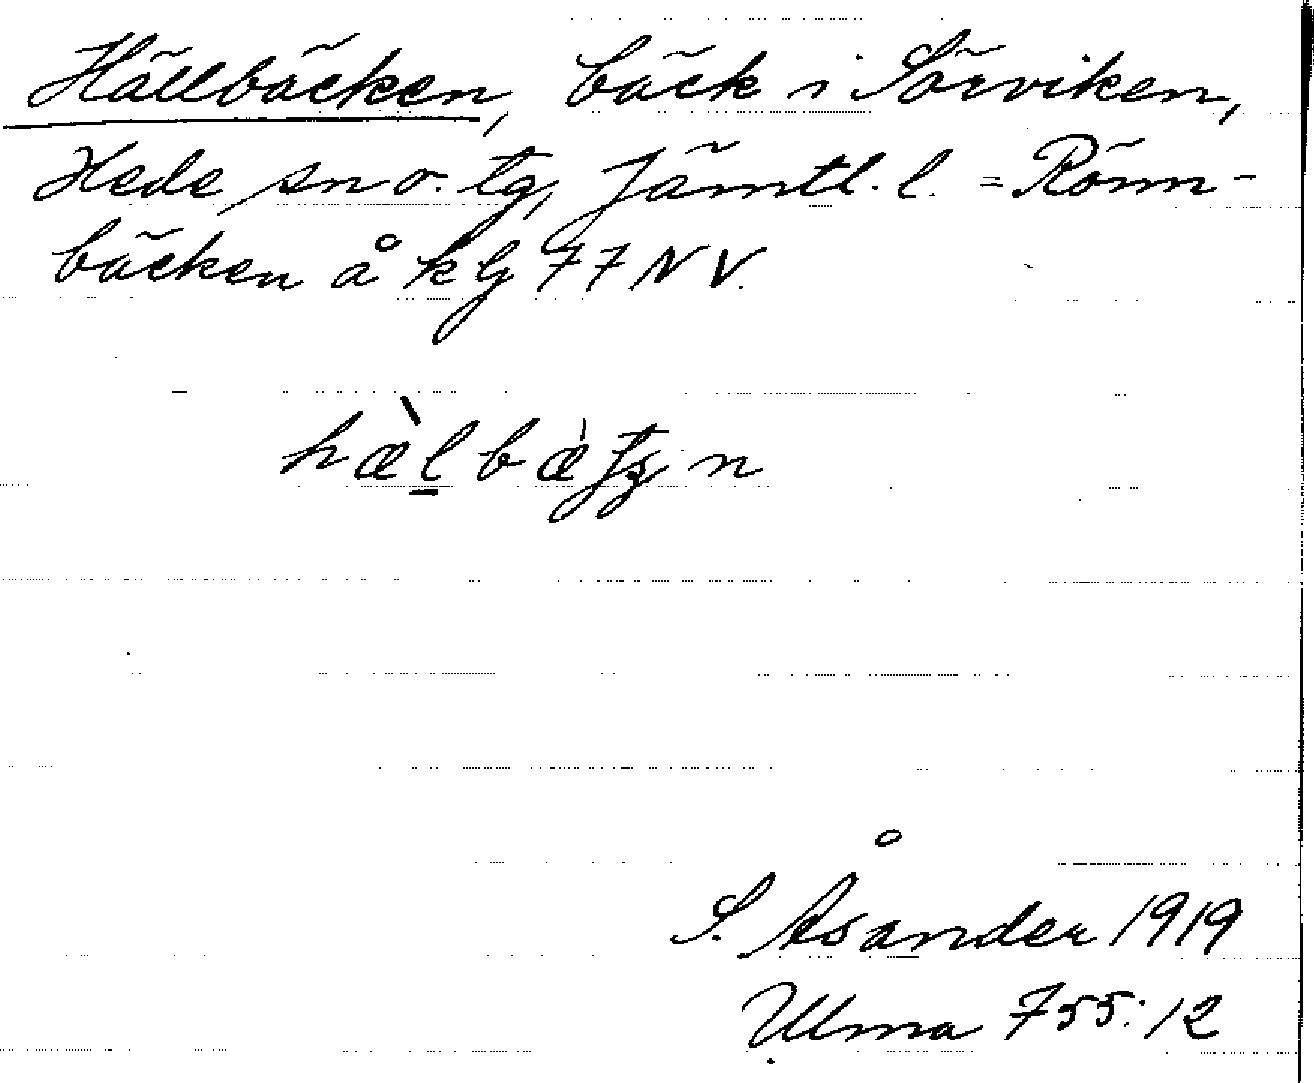 Hällbäcken, bäck i Sörviken,
Hede sn o. tg, Jämtl. l. = Rönn-
bäcken å kG 77 NV.
S. Åsander 1919
Ulma 755:12